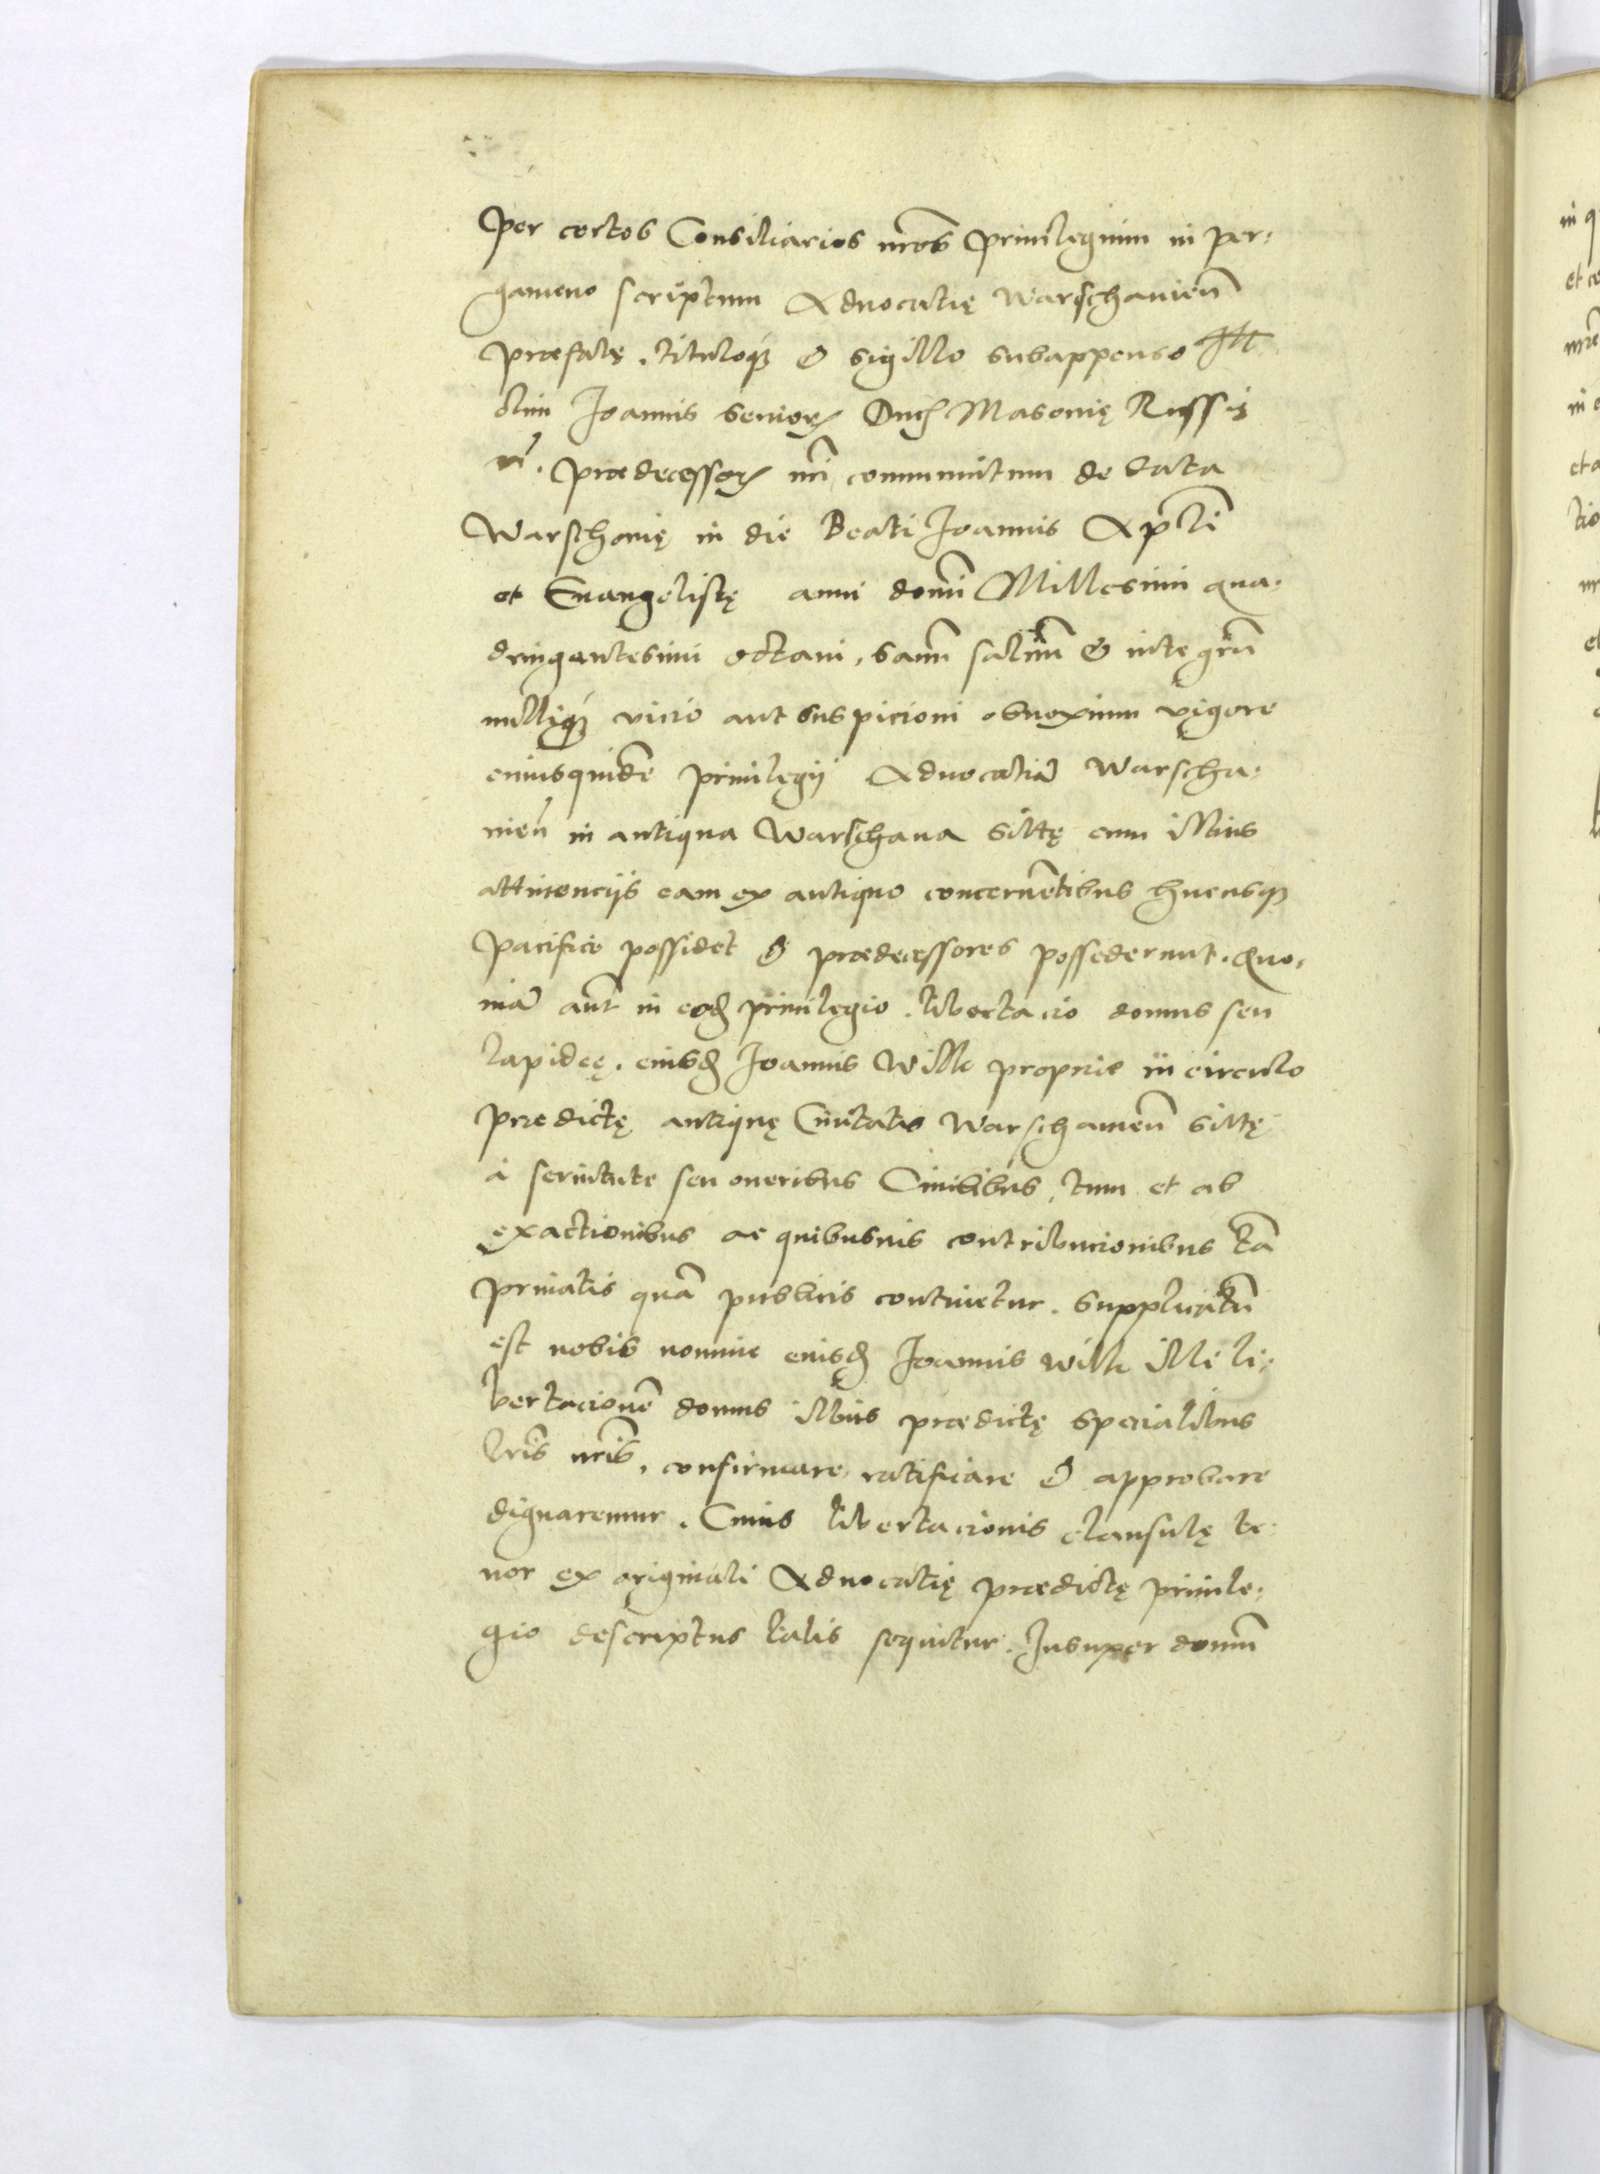 per certos Consiliarios nr̃os priuilegium in per-
gameno scriptum Aduocatię Warschauien̄
præfatę. tituloq3 & sigillo subappenso Ill
olim Joannis senior Duc Masouię Russię
r̃. prædecessor nr̃i communitum de data
Warschouię in die Beati Joannis Ap̃li
et Euangelistę anni domi Millesimi qua-
dringentesimi octaui, sanū saluū & integrū
nulliq3 vicio aut suspicioni obnoxium vigore
cuiusquidē priuilegij Aduocatiā Warscha-
uien̄ in antiqua Warschaua sitę cum illius
attinencijs eam ex antiquo concernētibus hucusq3
pacifice possidet & prædecessores possederunt. Quo-
niā aut̄ in eod priuilegio. libertacio domus seu
lapideę. eiusd Joannis Wilk proprie in circulo
prædictę antiquę Ciuitatis Warschauien̄ sitę
à seruitute seu oneribus Ciuilibus, tum et ab
exactionibus ac quibusuis contribucionibus tā
priuatis quā publicis continetur. supplicatū
est nobis nomine eiusd Joannis wilk illi li-
bertacionē domus illius prædictę specialibus
lr̃is nr̃is, confirmare, ratificare & approbare
dignaremur. Cuius libertacionis clausulę te-
nor ex originali Aduocatię prædictę priuile-
gio descriptus talis sequitur. Insuper domū
in q
et ce
in
et a
tio